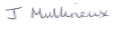 J Mulhireux